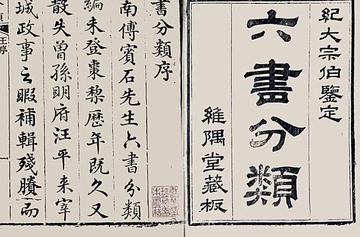 紀大宗伯鑒定
六書分類
維隅堂藏板
書分類序
南傅賓石先生六書分類
編未登棗梨歷年既久又
散失曾孫明府汪平來宰
城政事之暇補輯殘賸而